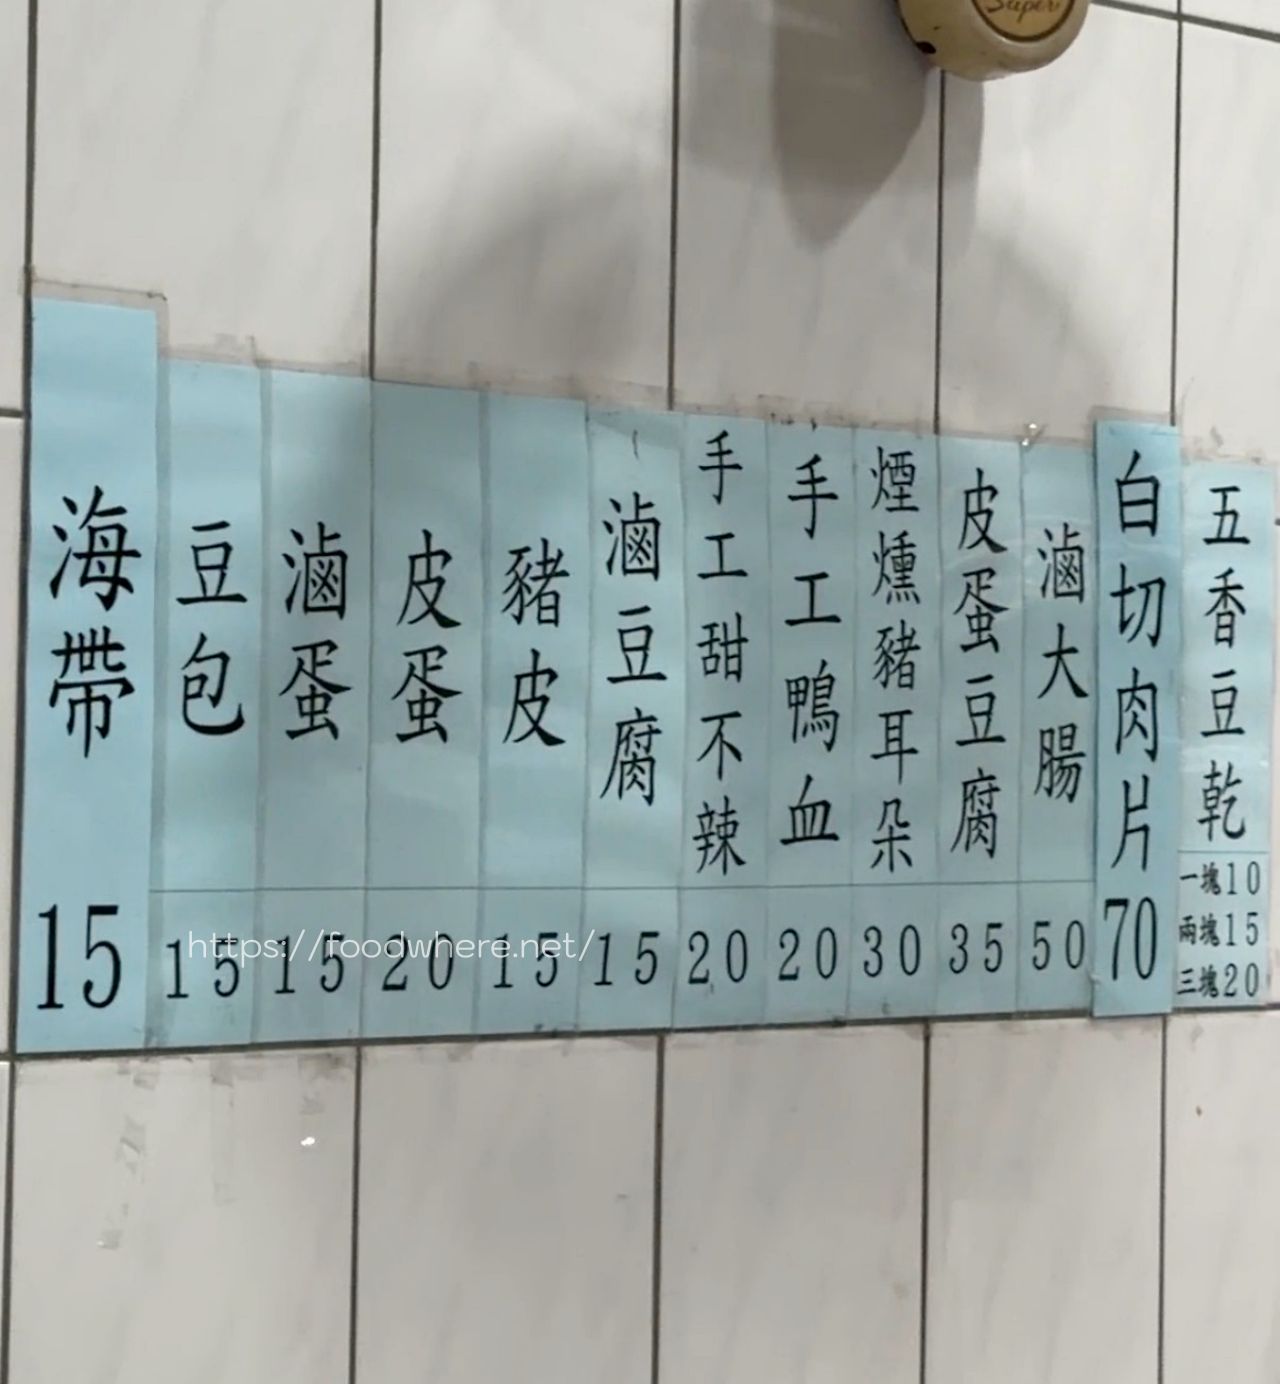 Super
五香豆乾
一塊10
兩塊15
三塊20
白切肉片
70
滷大腸
50
皮蛋豆腐
35
煙燻豬耳朵
30
手工鴨血
20
手工甜不辣
20
滷豆腐
15
豬皮
15
皮蛋
20
滷蛋
15
豆包
15
海帶
15
https://foodwhere.net/